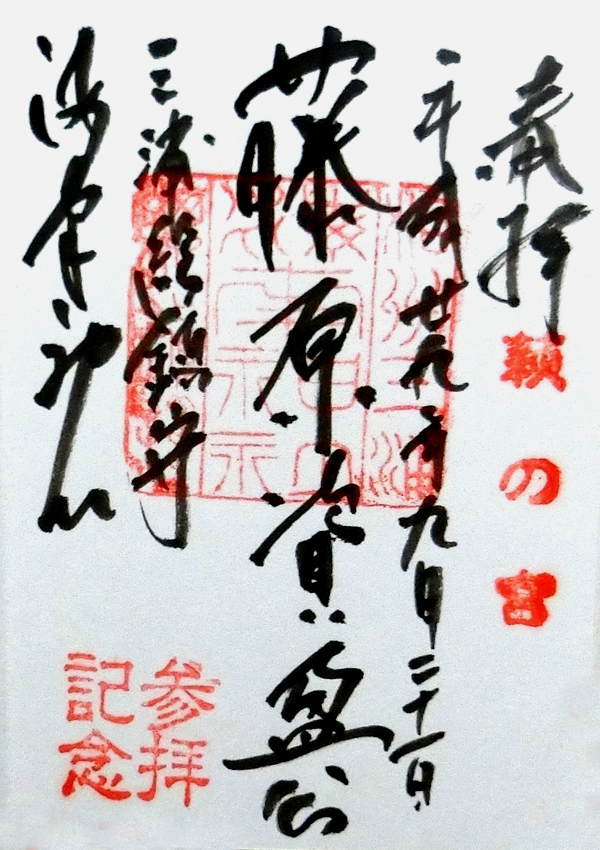 奉拝
頼の宮
平成廿九年九月二十一日
藤原資盈公
三浦総鎮守
海南神社
参拝
記念